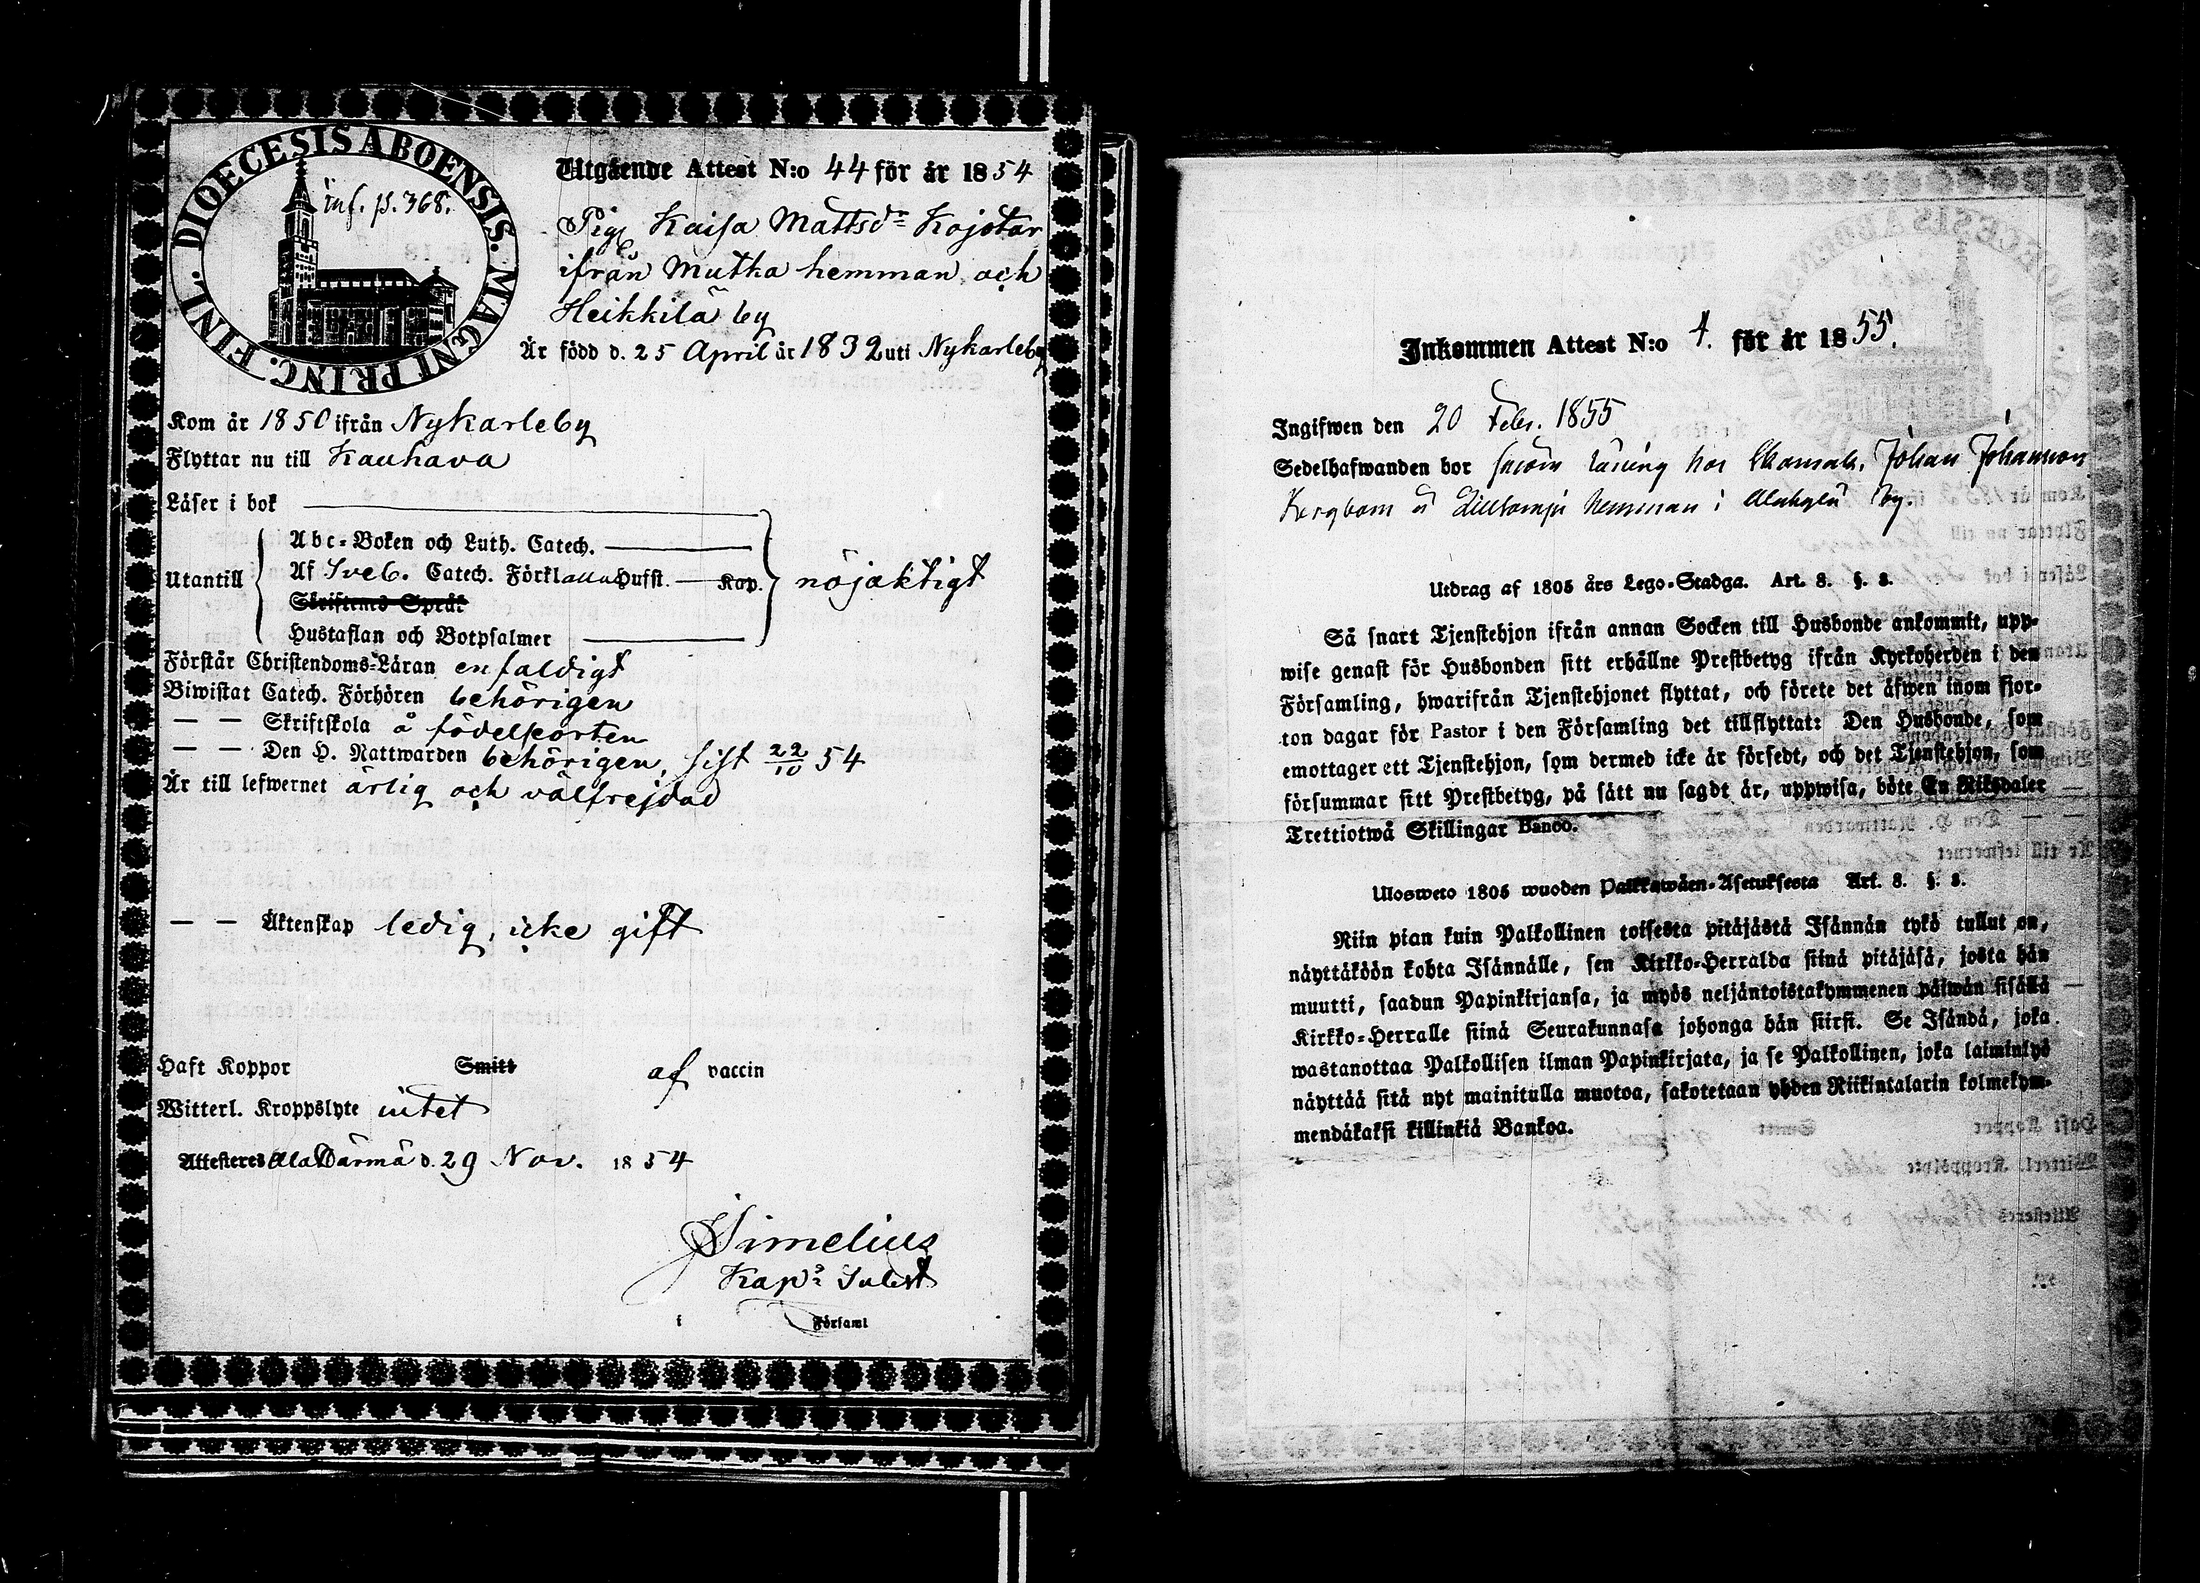 DIOECESIS ABOENSIS. MAGNI PRINC. FINL.
inf. p. 368.
Utgående Attest N:o 44 för år 1854
Pig. Kaisa Mattsdr Kojstar
ifrån Mutka hemman och
Heikkilä by
Är född d. 25 April år 1832 uti Nykarleby
Kom år 1850 ifrån Nykarleby
Flyttar nu till Kauhava
Läser i bok
Utantill
Abc-Boken och Luth. Catech.
Af Sveb. Catech. Förkl allna Hufst. Kap.
nöjaktigt
Skriftens Språk
Hustaflan och Botpsalmer
Förstår Christendoms-Läran enfaldigt
Biwistat Catech. Förhören behörigen
— — Skriftskola å födelseorten
— — Den H. Nattwarden behörigen, sist 22/10 54
Är till lefwernet ärlig och välfrejdad
— — Äktenskap ledig, icke gift
Haft Koppor Smitt af vaccin
Witterl. Kroppslyte intet
Attesteres Ala Härmä d. 29 Nov. 1854
Simelius
Kapn
i Församl
Inkommen Attest N:o 4. för år 1855.
Ingifwen den 20 Febr. 1855
Sedelhafwanden bor såsom hos Johan Johansson
å hemman i by.
Utdrag af 1805 års Lego-Stadga. Art. 8. §. 8.
Så snart Tjenstehjon ifrån annan Socken till Husbonde ankommit, upp-
wise genast för Husbonden sitt erhållne Prestbetyg ifrån Kyrkoherden i den
Församling, hwarifrån Tjenstehjonet flyttat, och förete det äfwen inom fjor-
ton dagar för Pastor i den Församling det tillflyttat: Den Husbonde, som
emottager ett Tjenstehjon, som dermed icke är försedt, och det Tjenstehjon, som
försummar sitt Prestbetyg, på sätt nu sagdt är, uppwisa, böte En Riksdaler
Trettiotwå Skillingar Banco.
Ulosweto 1805 wuoden Palkkawäen-Asetuksesta Art. 8. §. 8.
Niin pian kuin Palkollinen toisesta pitäjästä Isännän tykö tullut on,
näyttäköön kohta Isännälle, sen Kirkko-Herralda siinä pitäjäsä, josta hän
muutti, saadun Papinkirjansa, ja myös neljäntoistakymmenen päiwän sisällä
Kirkko-Herralle siinä Seurakunnasa johonga hän siirsi. Se Isändä, joka
wastanottaa Palkollisen ilman Papinkirjata, ja se Palkollinen, joka laiminlyö
näyttää sitä nyt mainitulla muotoa, sakotetaan yhden Riikintalarin kolmekym-
mendäkaksi killinkiä Bankoa.